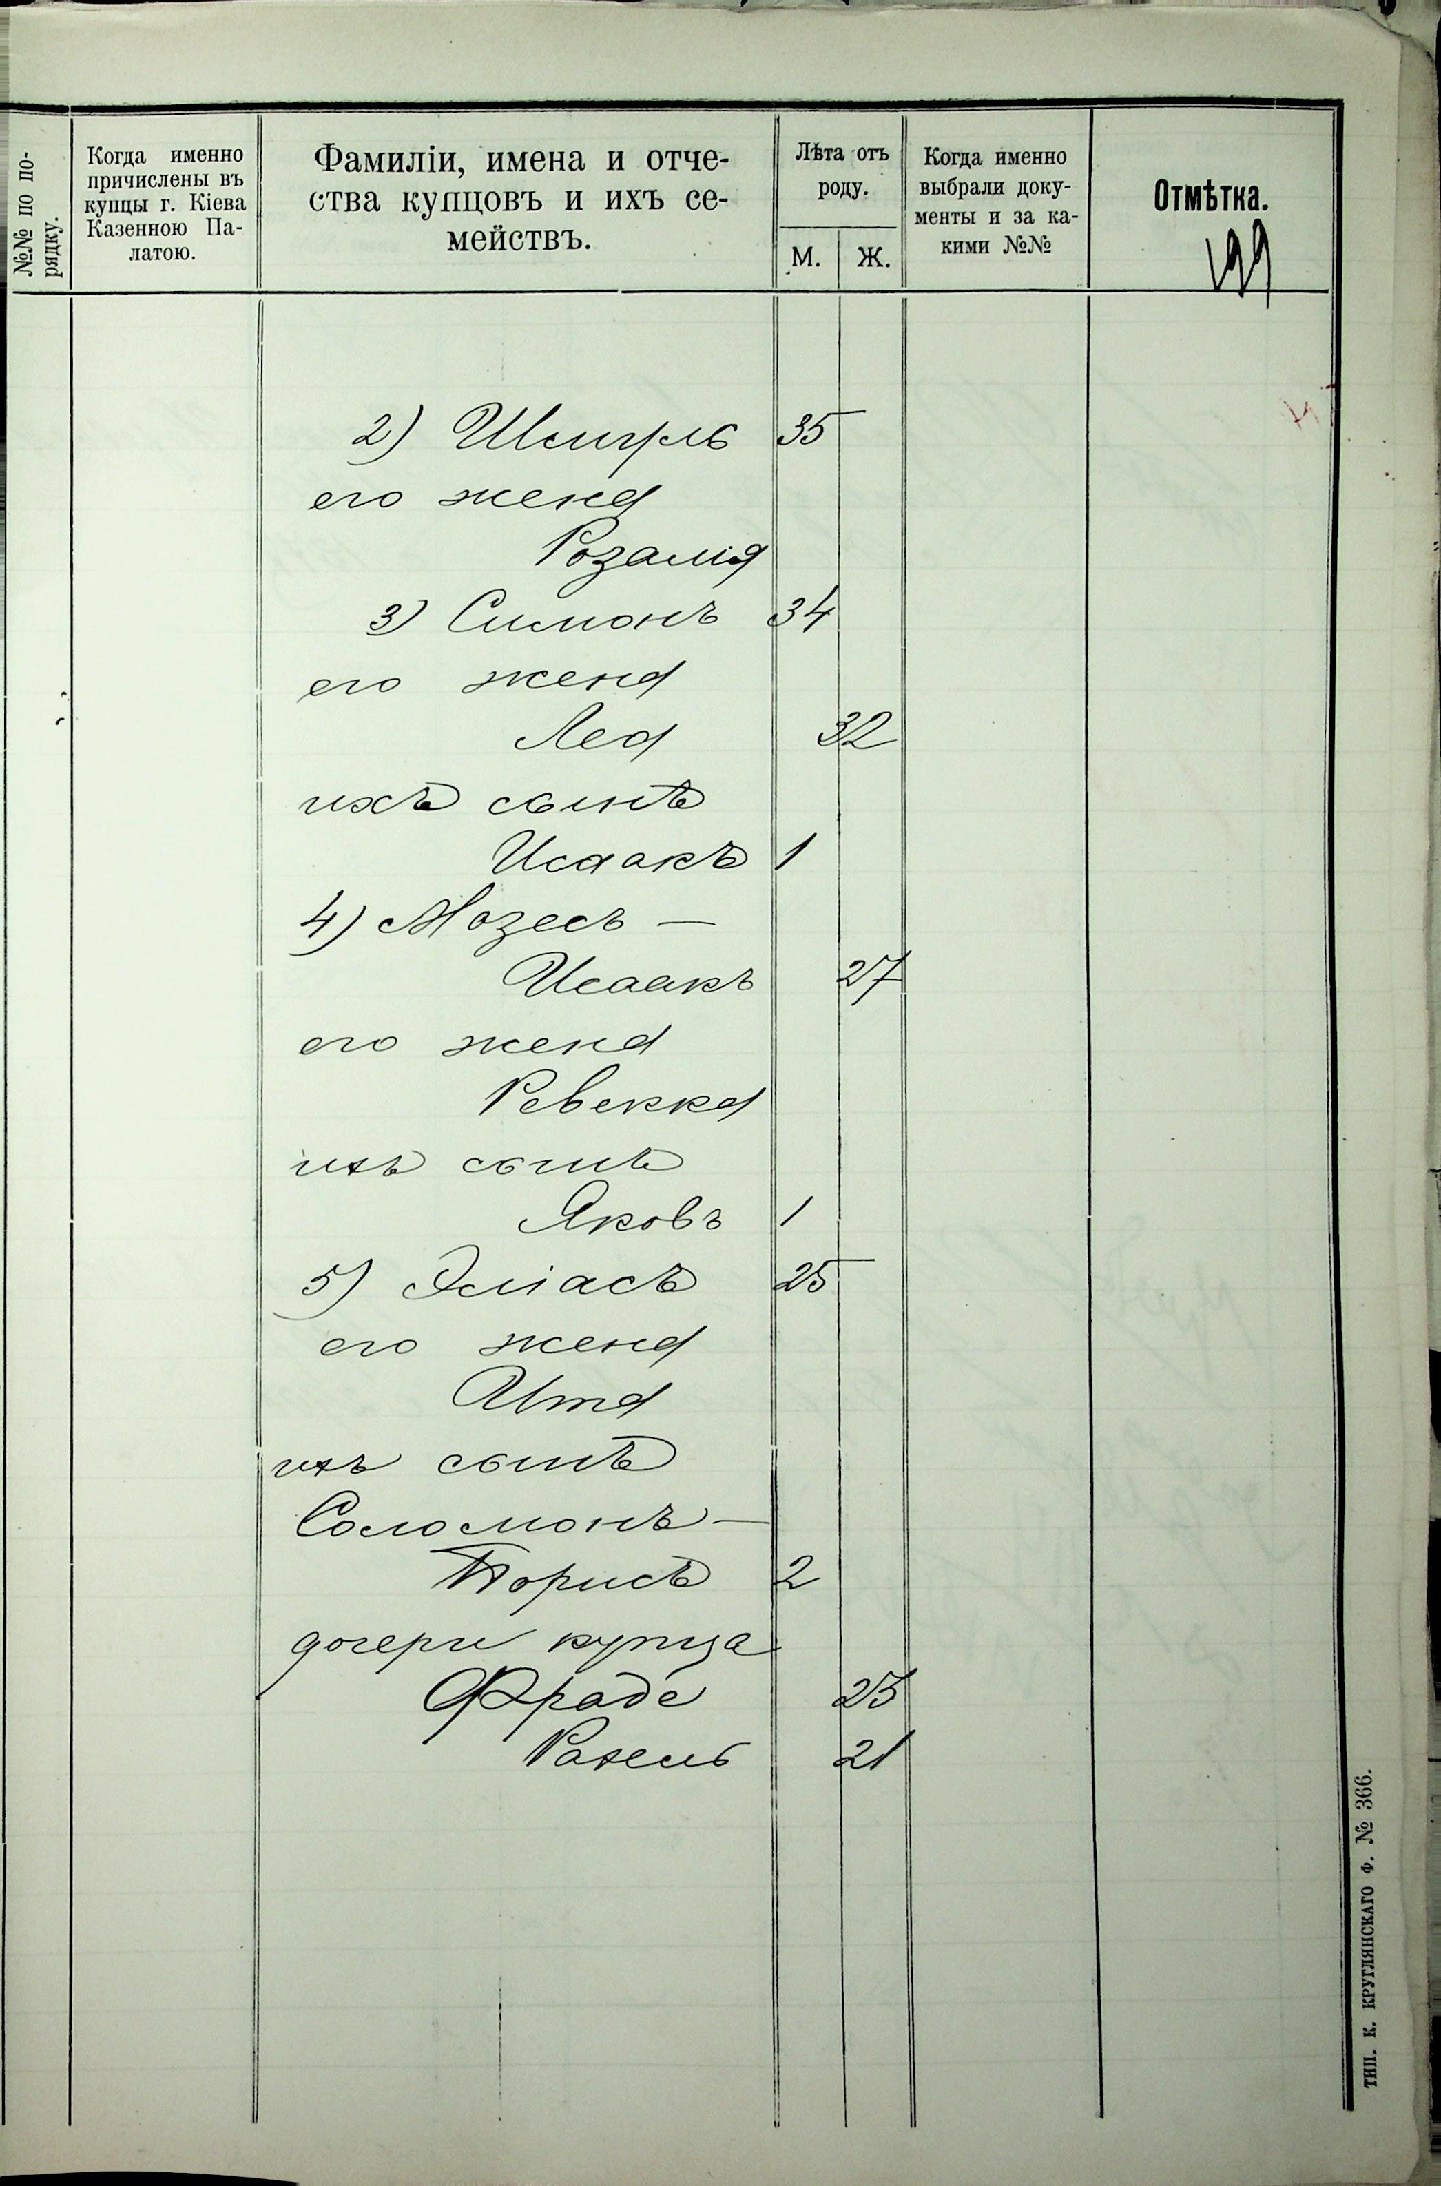 №№ по по-
рядку.
Когда именно
причислены въ
купцы г. Кіева
Казенною Па-
латою.
Фамиліи, имена и отче-
ства купцовъ и ихъ се-
мействъ.
Лѣта отъ
роду.
М. Ж.
Когда именно
выбрали доку-
менты и за ка-
кими №№
Отмѣтка.
199
2) Шмуль 35
его жена
Розалія
3) Симонъ 34
его жена
Леа 32
ихъ сынъ
Исаакъ 1
4) Мозесъ —
Исаакъ 27
его жена
Ревекка
ихъ сынъ
Яковъ 1
5) Эліасъ 25
его жена
Ита
ихъ сынъ
Соломонъ —
Борисъ 2
дочери купца
Фраде 23
Рахель 21
ТИП. К. КРУГЛЯНСКАГО Ф. № 366.